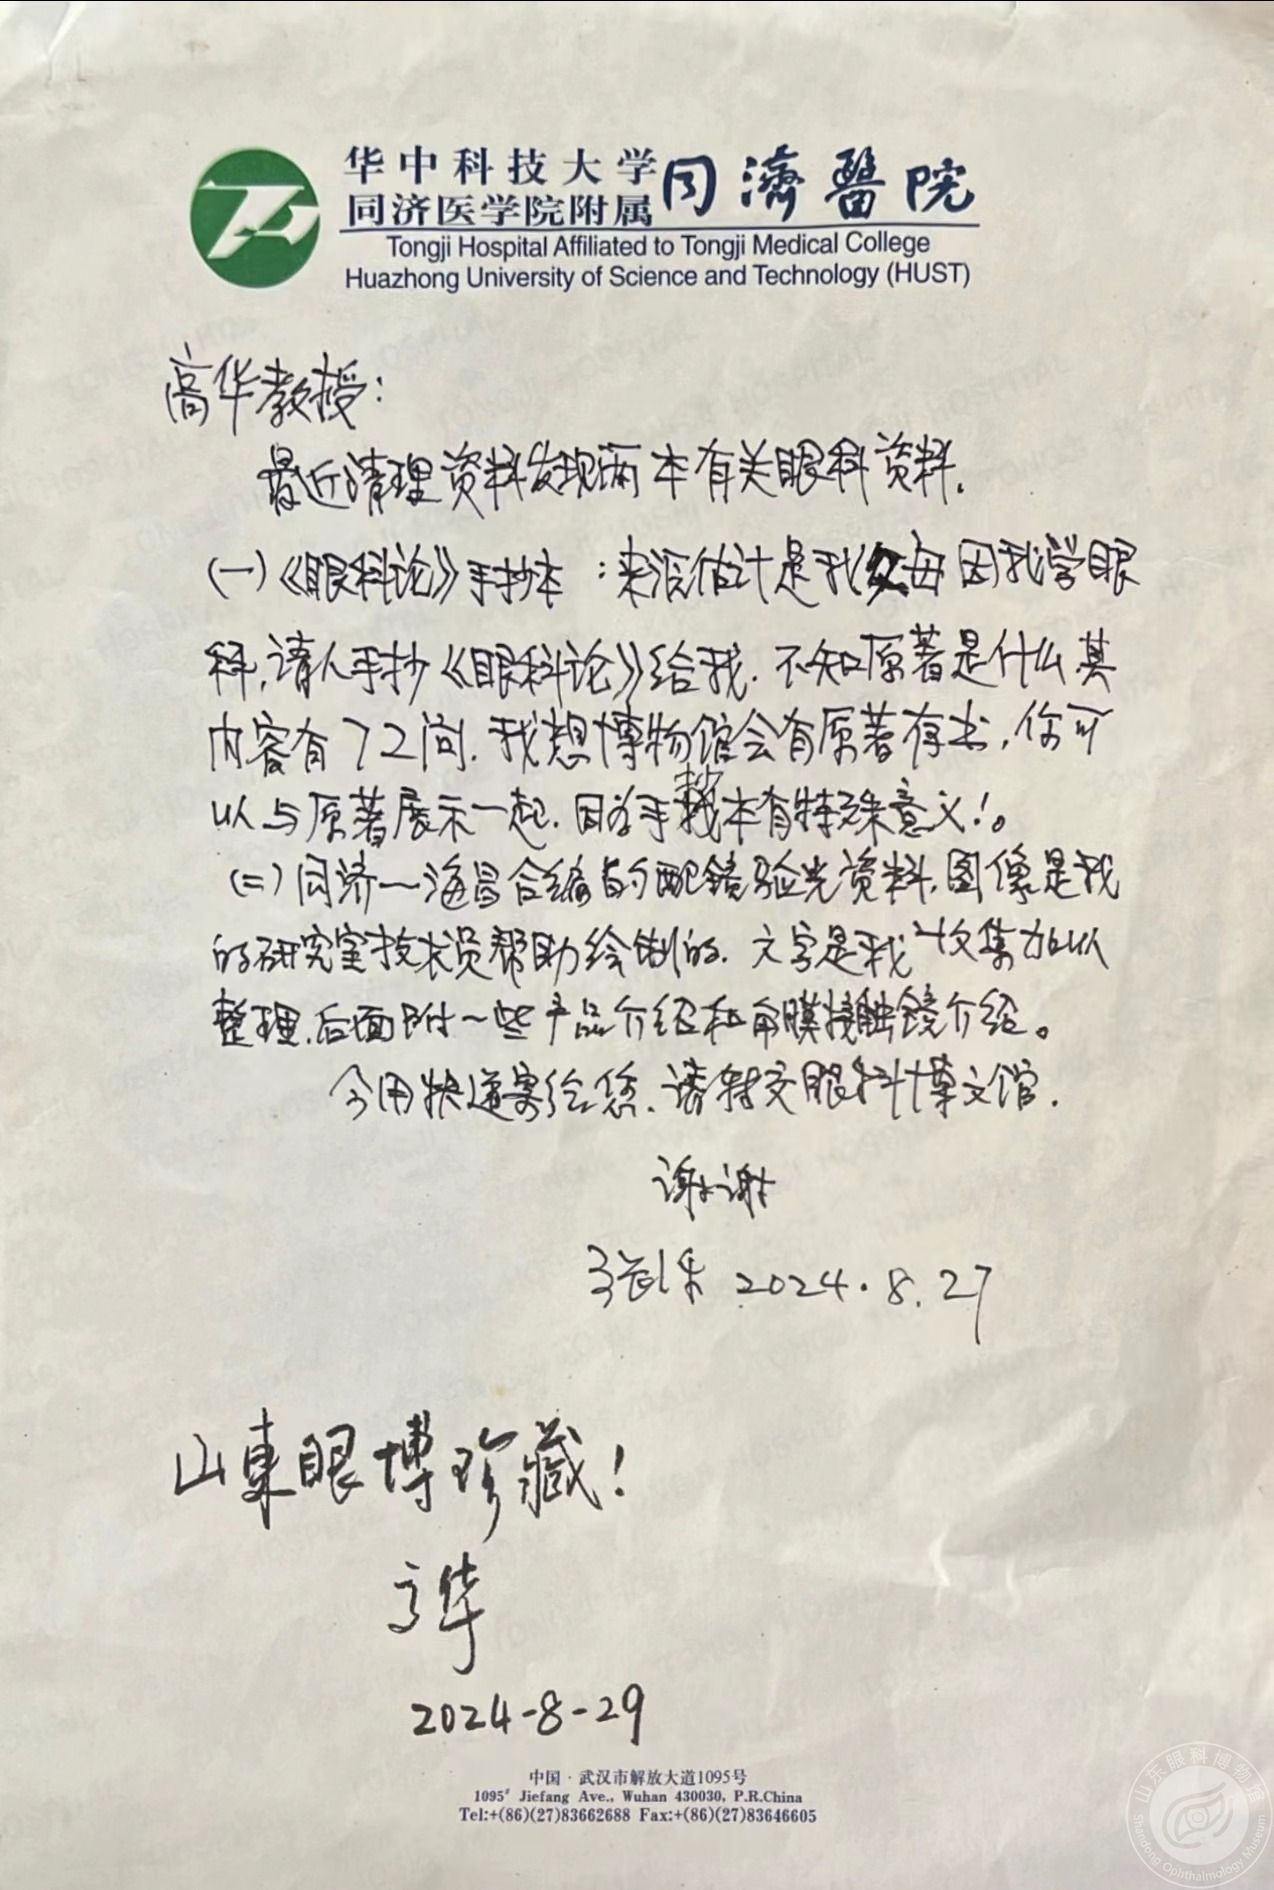 华中科技大学
同济医学院附属
同濟醫院
Tongji Hospital Affiliated to Tongji Medical College
Huazhong University of Science and Technology (HUST)
高华教授：
最近清理资料发现两本有关眼科资料.
(一)《眼科论》手抄本：来源估计是我父母因我学眼
科,请人手抄《眼科论》给我.不知原著是什么其
内容有72问.我想博物馆会有原著存书,你可
以与原著展示一起.因为手抄本有特殊意义！。
(二)同济一海昌合编的配镜验光资料,图像是我
的研究室技术员帮助绘制的.文字是我收集加以
整理.后面附一些产品介绍和角膜接触镜介绍。
今用快递寄给您.请转交眼科博文馆.
谢谢
2024.8.27
山東眼博珍藏！
高华
2024-8-29
中国·武汉市解放大道1095号
1095# Jiefang Ave., Wuhan 430030, P.R.China
Tel:+(86)(27)83662688 Fax:+(86)(27)83646605
山东眼科博物馆
Shandong Ophthalmology Museum